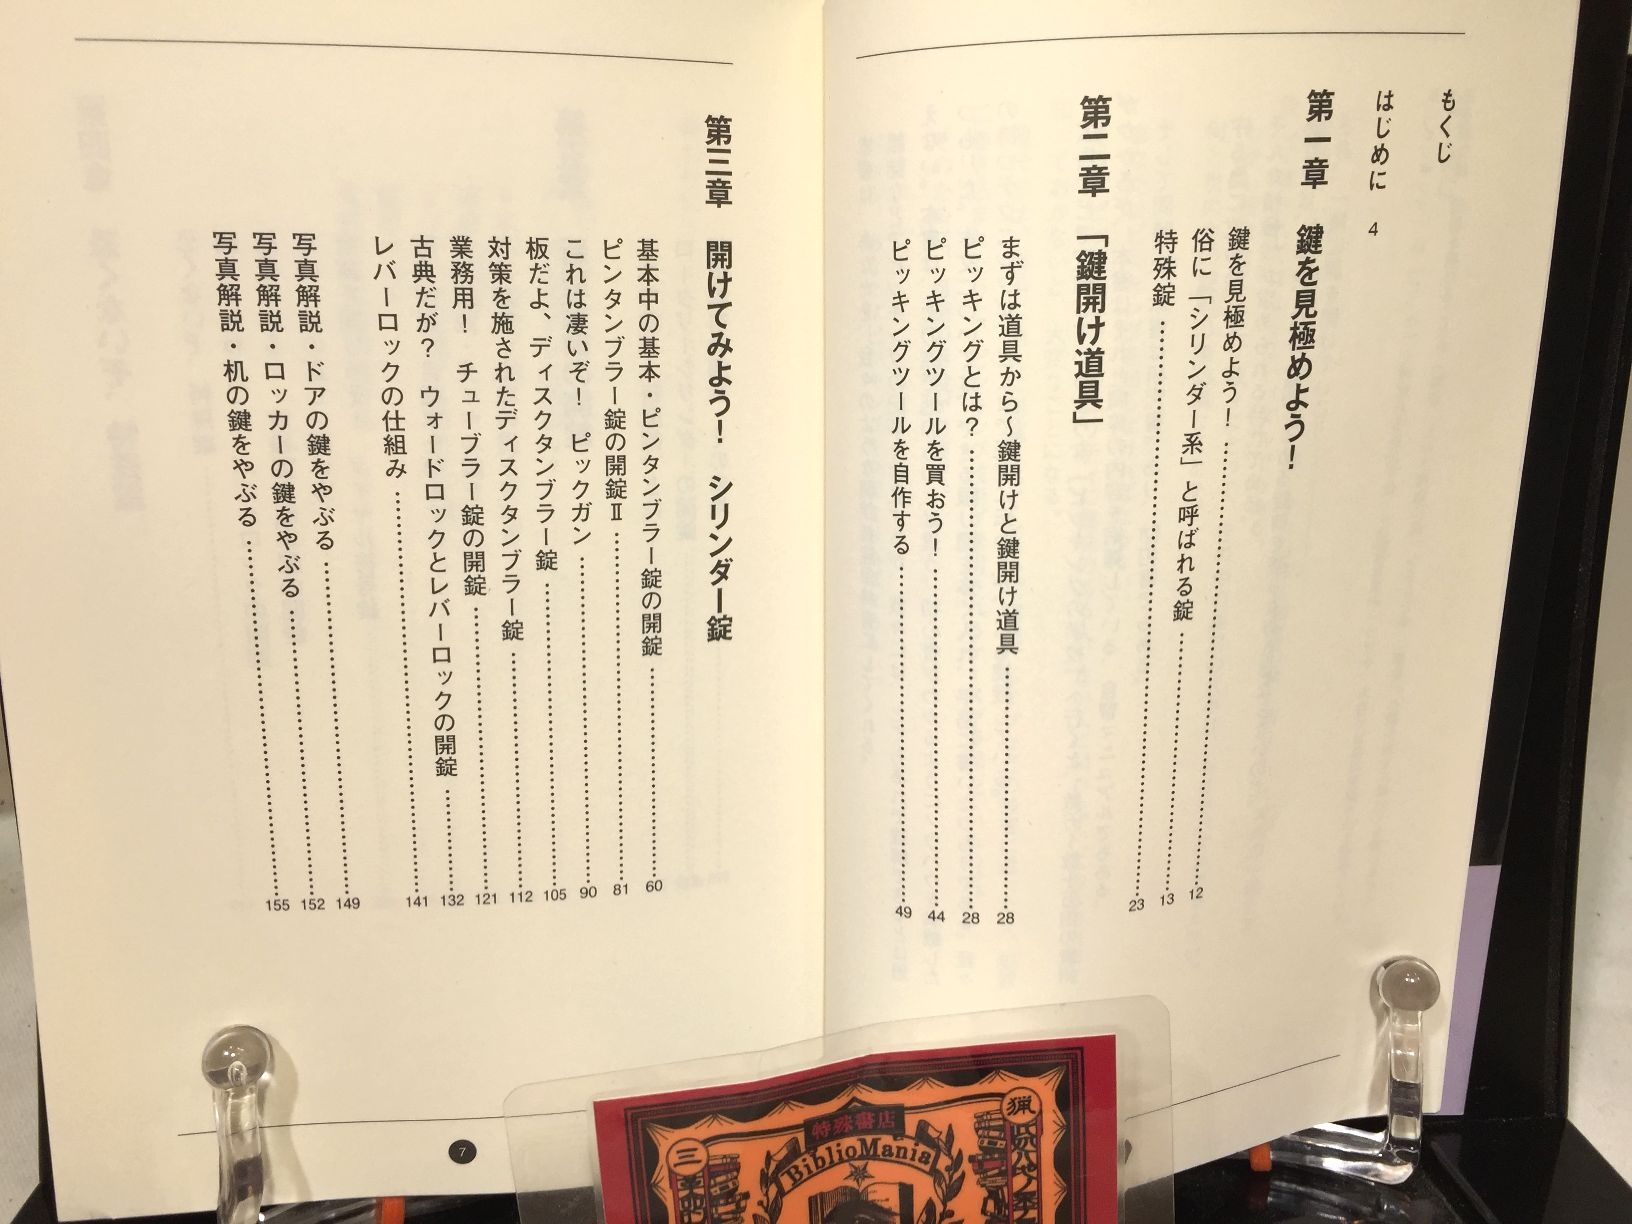 もくじ
はじめに 4
第一章 鍵を見極めよう！
鍵を見極めよう！ 12
俗に「シリンダー系」と呼ばれる錠 13
特殊錠 23
第二章 「鍵開け道具」
まずは道具から〜鍵開けと鍵開け道具 28
ピッキングとは？ 28
ピッキングツールを買おう！ 44
ピッキングツールを自作する 49
第三章 開けてみよう！ シリンダー錠
基本中の基本・ピンタンブラー錠の開錠 60
ピンタンブラー錠の開錠Ⅱ 81
これは凄いぞ！ ピックガン 90
板だよ、ディスクタンブラー錠 105
対策を施されたディスクタンブラー錠 112
業務用！ チューブラー錠の開錠 121
古典だが？ ウォードロックとレバーロックの開錠 132
レバーロックの仕組み 141
写真解説・ドアの鍵をやぶる 149
写真解説・ロッカーの鍵をやぶる 152
写真解説・机の鍵をやぶる 155
7
特殊書店
BiblioMania
猟
三